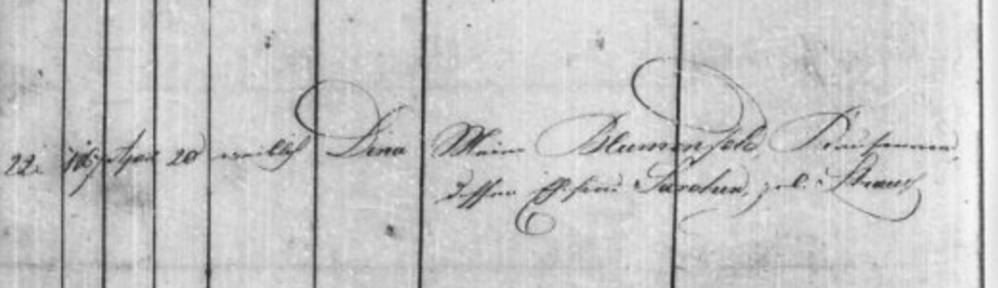 22. 1867 20 weiblich Lina Meier Blumenfeld, Kaufmann,
dessen Ehefrau Sarchen, geb. Strauß